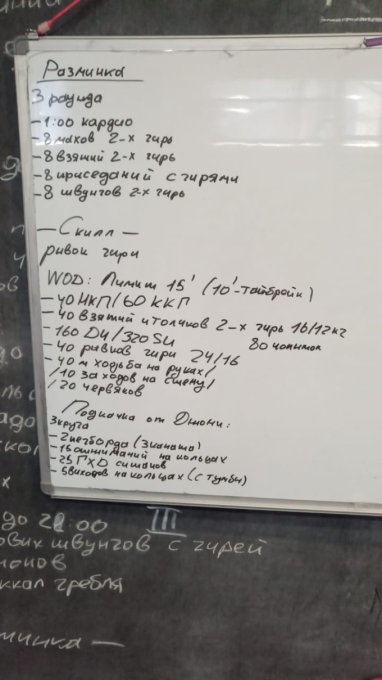 Разминка
3 раунда
-1:00 кардио
-8 махов 2-х гирь
-8 взятий 2-х гирь
-8 приседаний с гирями
-8 швунгов 2-х гирь
-Скилл-
рывок гири
WOD: Лимит 15' (10'-тайбрейк)
-40 НКП/60 ККП
-40 взятий и толчков 2-х гирь 16/12кг
-160 DU/320 SU 80 челноков
-40 рывков гири 24/16
-40 м ходьба на руках/
/10 заходов на стену/
/20 червяков
Подкачка от
3 круга
-2 пегборда (3 каната)
-15 отжиманий на кольцах
-25 ГХД ситапов
-5 выходов на кольцах (с тумбы)
до 22:00 III
овых швунгов с гирей
ккал гребля
минка -